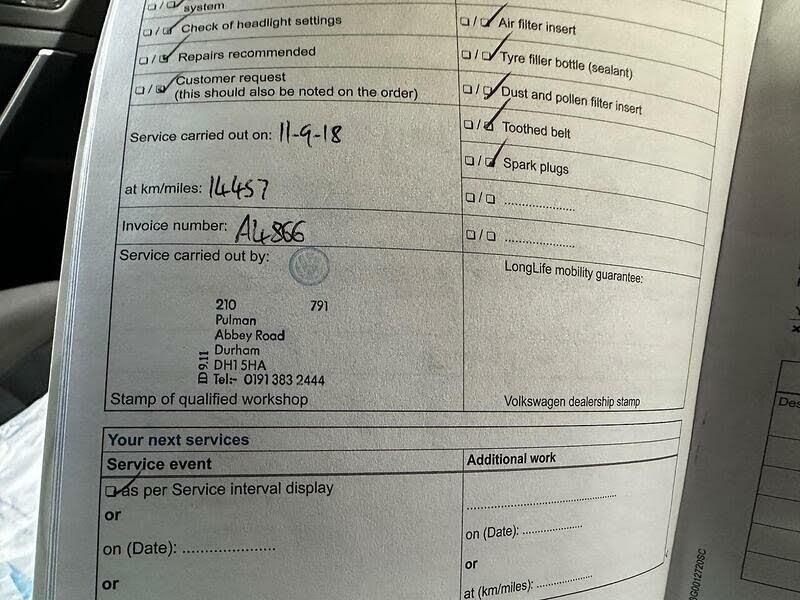 system
Check of headlight settings
Repairs recommended
Customer request
(this should also be noted on the order)
Service carried out on: 11-9-18
at km/miles: 14457
Invoice number: A14866
Service carried out by:
210 791
Pulman
Abbey Road
Durham
DH1 5HA
Tel:- 0191 383 2444
ID 9.11
Stamp of qualified workshop
Air filter insert
Tyre filler bottle (sealant)
Dust and pollen filter insert
Toothed belt
Spark plugs
LongLife mobility guarantee:
Volkswagen dealership stamp
Your next services
Service event
as per Service interval display
or
on (Date): ......................
or
Additional work
on (Date): ..............
or
at (km/miles): .............